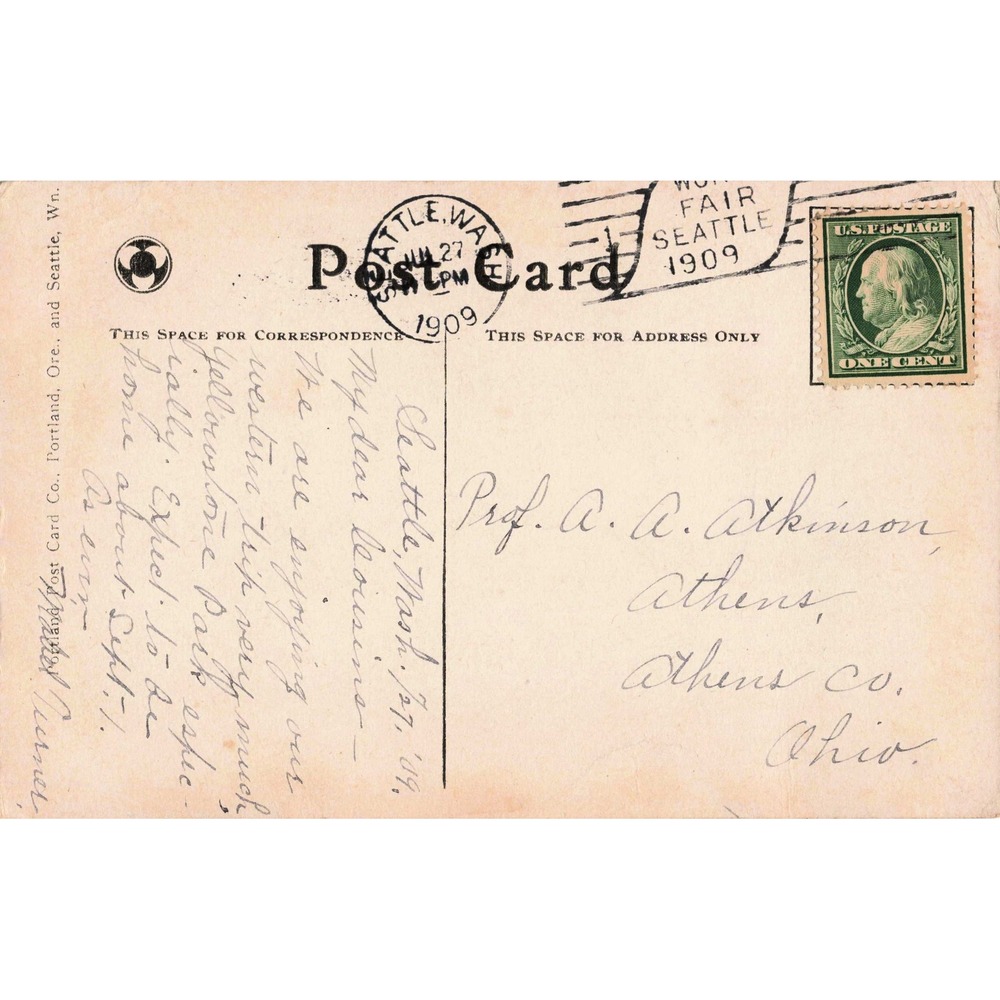 Portland Post Card Co., Portland, Ore., and Seattle, Wn.
Post Card
SEATTLE, WASH
JUL 27
PM
1909
1
FAIR
SEATTLE
1909
U.S. POSTAGE
ONE CENT
THIS SPACE FOR CORRESPONDENCE
THIS SPACE FOR ADDRESS ONLY
Seattle, Wash. 7/27, '09.
My dear Cousins—
We are enjoying our
western trip very much,
Yellowstone Park espec-
ially. Expect to be
home about Sept. 1.
As ever,
Mabel Turner.
Prof. A. A. Atkinson,
Athens,
Athens Co.
Ohio.